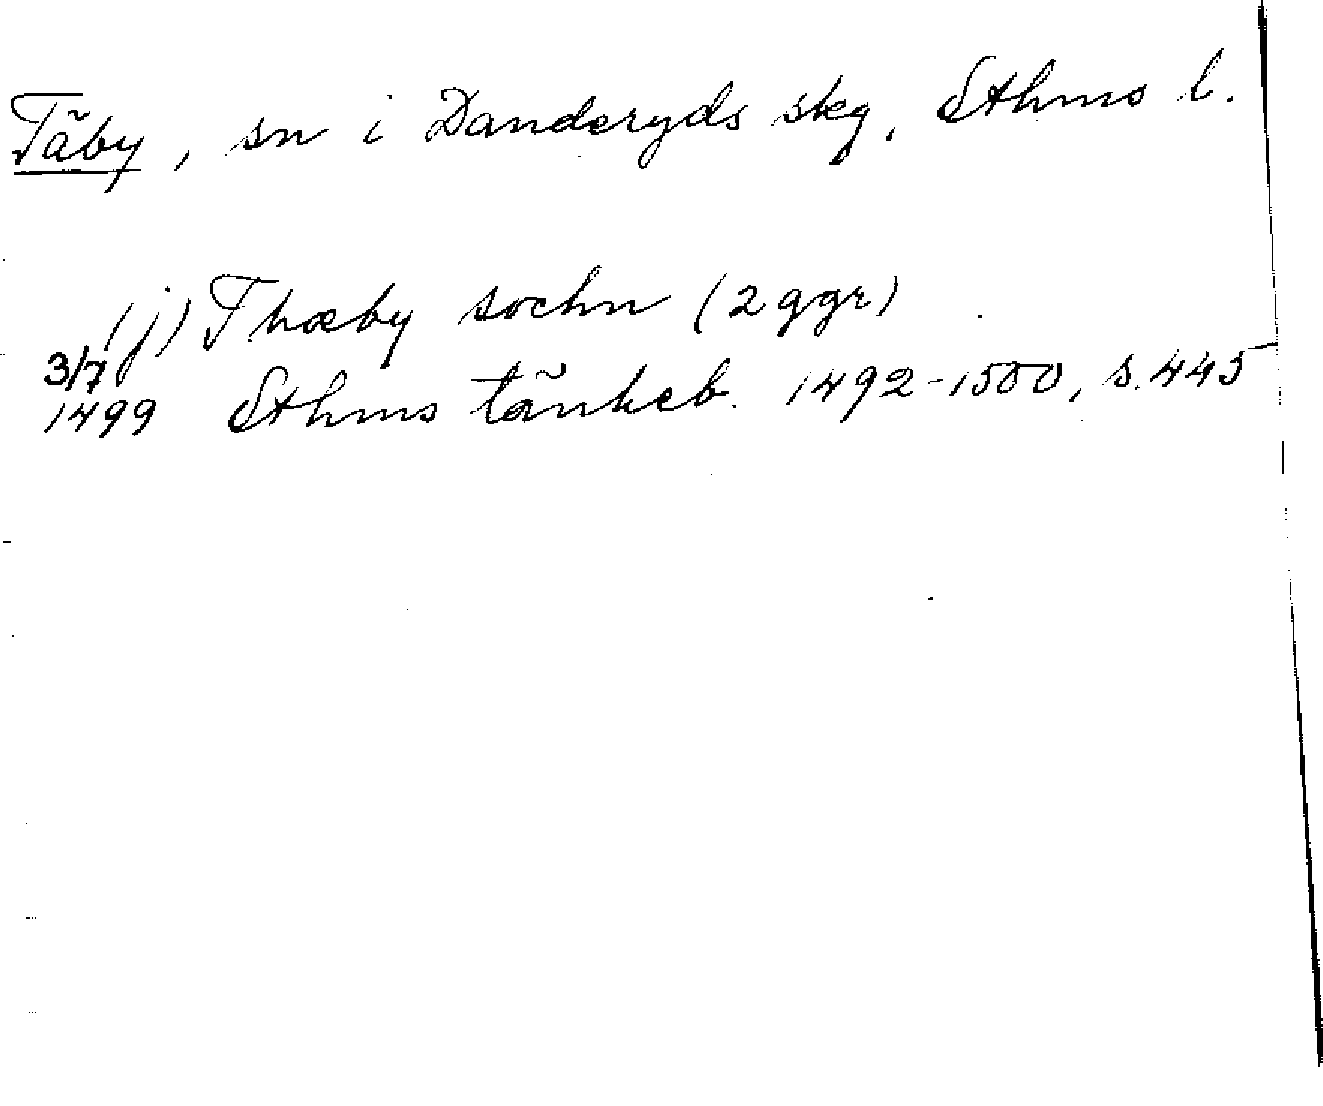 Täby, sn i Danderyds skg, Sthms l.
(j) Thæby sochn (2 ggr)
3/7
1499 Sthms tänkeb. 1492-1500, s. 445